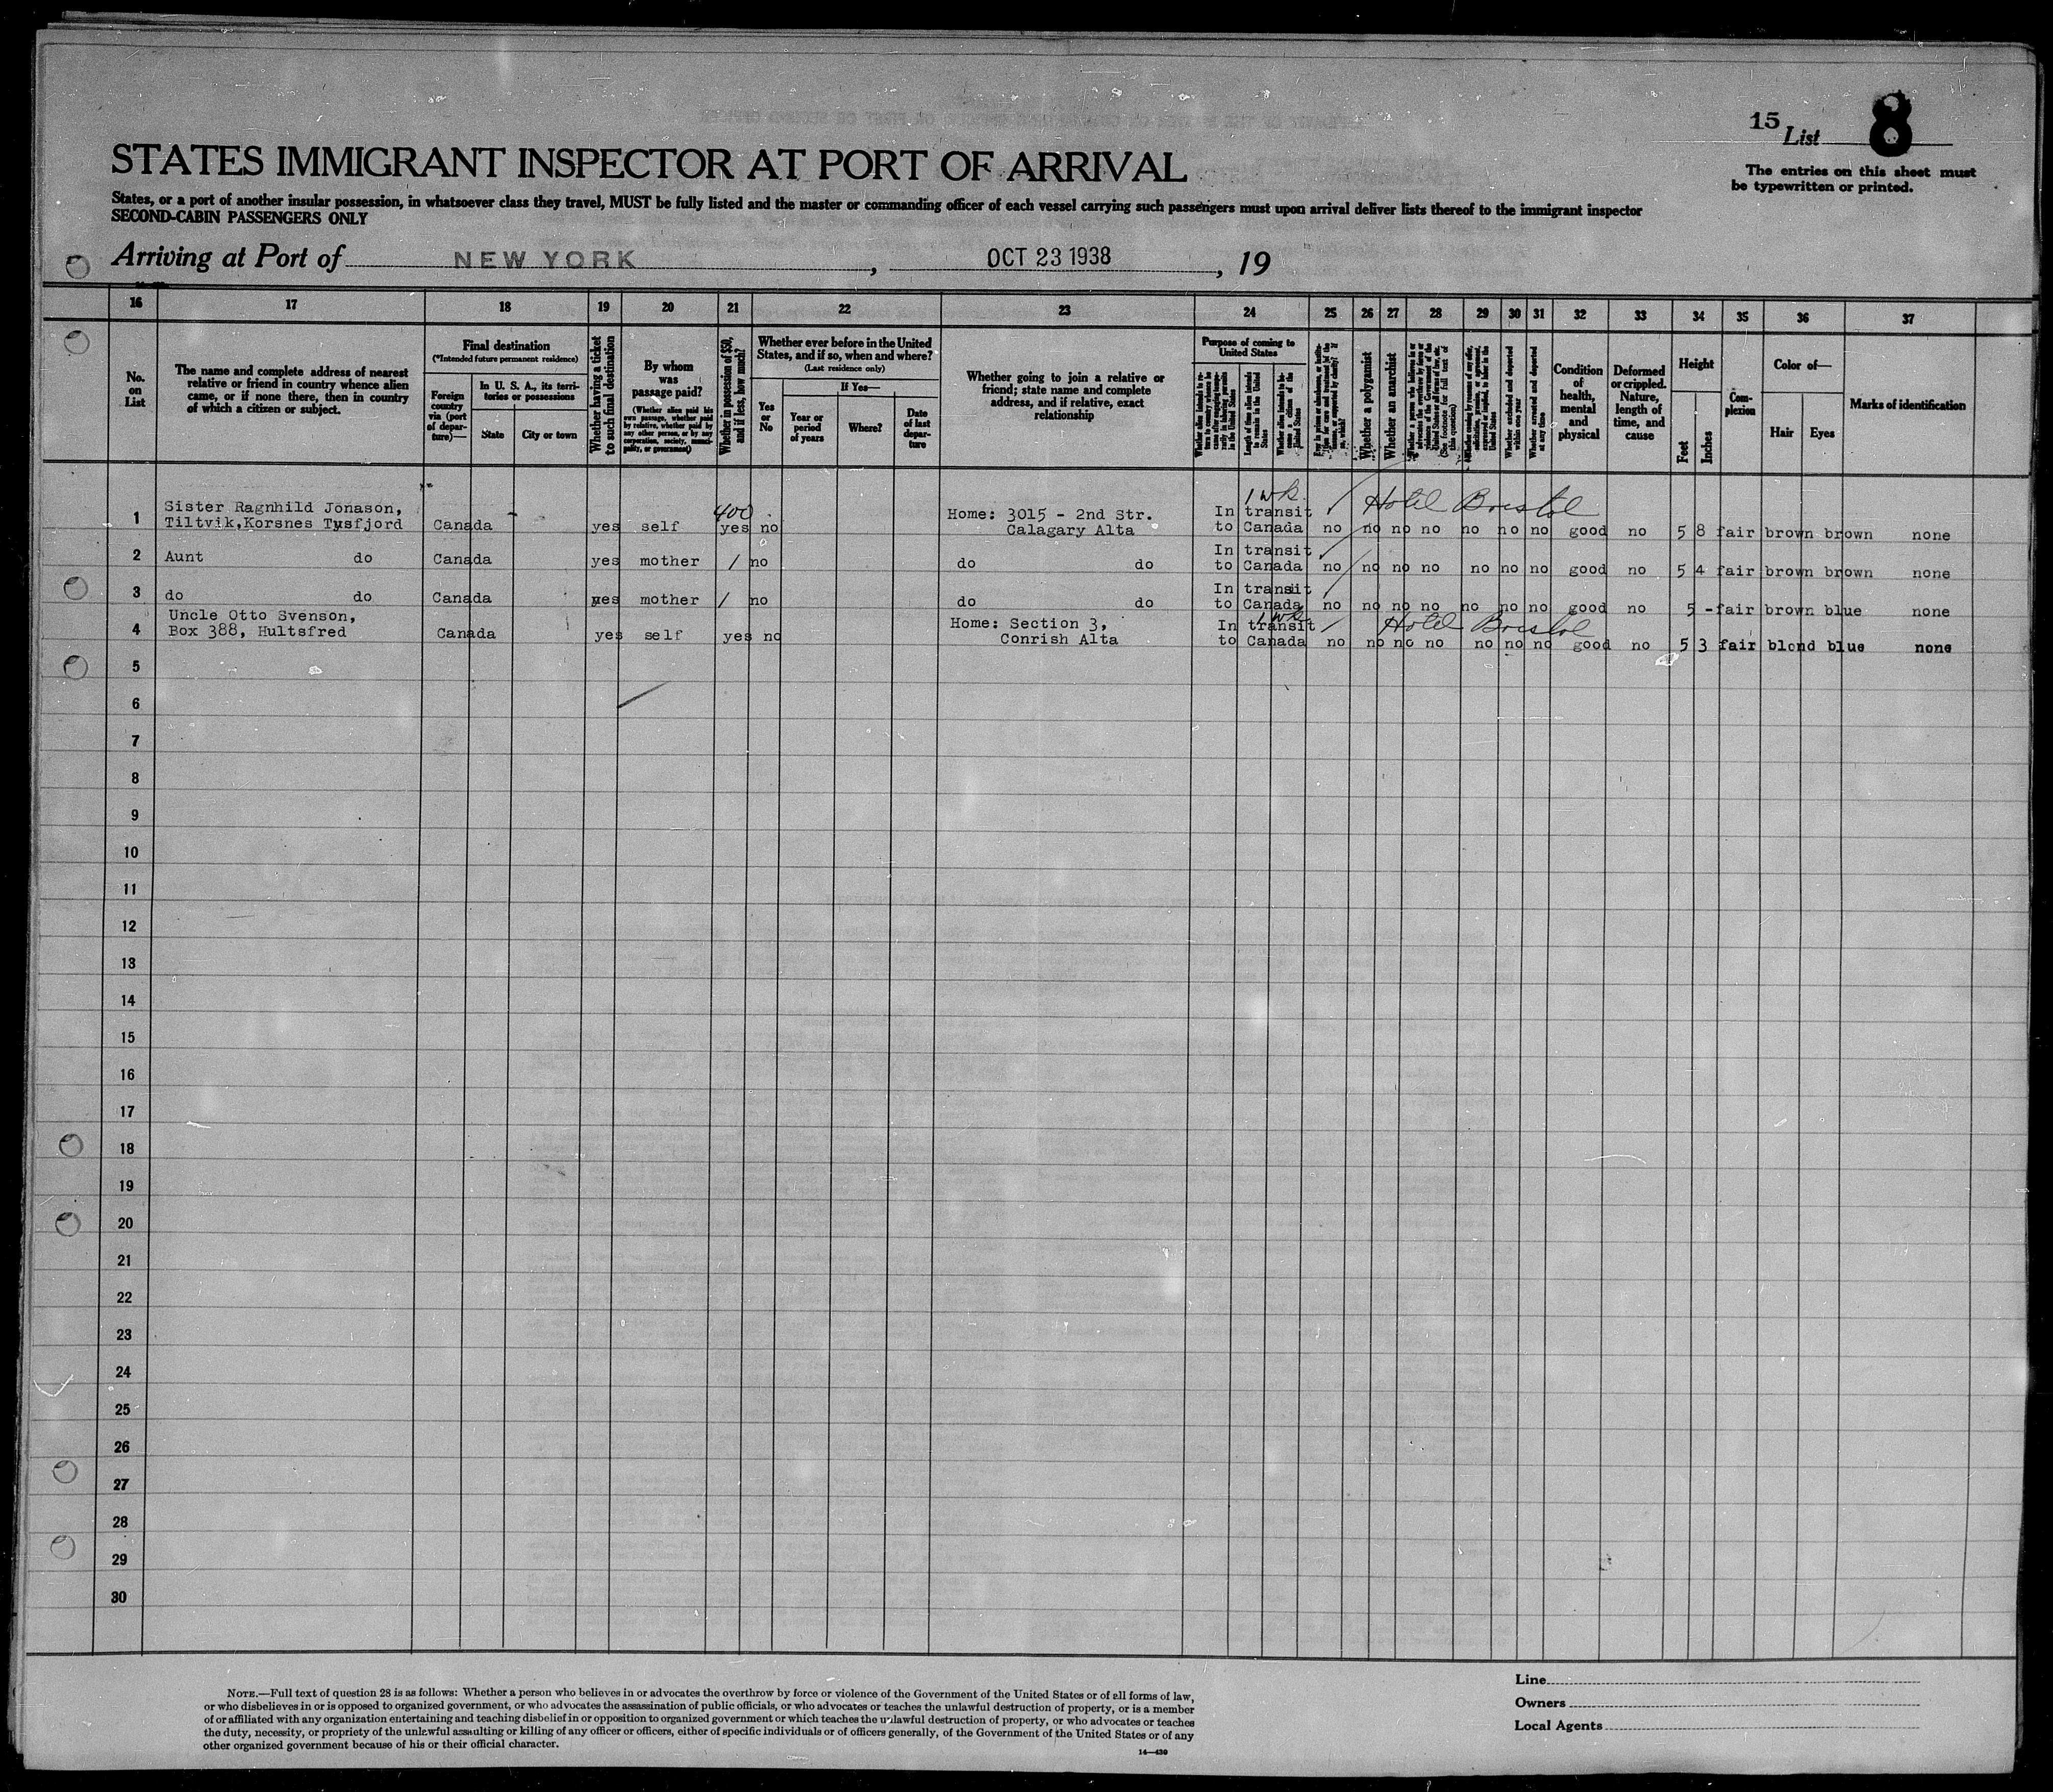 15 List 8
The entries on this sheet must
be typewritten or printed.
STATES IMMIGRANT INSPECTOR AT PORT OF ARRIVAL
States, or a port of another insular possession, in whatsoever class they travel, MUST be fully listed and the master or commanding officer of each vessel carrying such passengers must upon arrival deliver lists thereof to the immigrant inspector
SECOND-CABIN PASSENGERS ONLY
Arriving at Port of NEW YORK, OCT 23 1938, 19
16 17 18 19 20 21 22 23 24 25 26 27 28 29 30 31 32 33 34 35 36 37
No.
on
List
The name and complete address of nearest
relative or friend in country whence alien
came, or if none there, then in country
of which a citizen or subject.
Final destination
(*Intended future permanent residence)
Foreign
country
via (port
of depar-
ture)—
In U. S. A., its terri-
tories or possessions
State
City or town
Whether having a ticket
to such final destination
By whom
was
passage paid?
(Whether alien paid his
own passage, whether paid
by relative, whether paid by
any other person, or by any
corporation, society, munici-
pality, or government)
Whether in possession of $50,
and if less, how much?
Whether ever before in the United
States, and if so, when and where?
(Last residence only)
Yes
or
No
If Yes—
Year or
period
of years
Where?
Date
of last
depar-
ture
Whether going to join a relative or
friend; state name and complete
address, and if relative, exact
relationship
Purpose of coming to
United States
Length of time alien intends
to remain in the United
States
Whether alien intends to be-
come a citizen of the
United States
Whether a polygamist
Whether an anarchist
Whether excluded and deported
within one year
Whether arrested and deported
at any time
Condition
of
health,
mental
and
physical
Deformed
or crippled.
Nature,
length of
time, and
cause
Height
Feet
Inches
Com-
plexion
Color of—
Hair
Eyes
Marks of identification
1 wk. Hotel Bristol
400
Sister Ragnhild Jonason, Home: 3015 - 2nd Str. In transit
1 Tiltvik,Korsnes Tysfjord Canada yes self yes no Calagary Alta to Canada no no no no no no no good no 5 8 fair brown brown none
In transit
2 Aunt do Canada yes mother / no do do to Canada no no no no no no no good no 5 4 fair brown brown none
In transit
3 do do Canada yes mother / no do do to Canada no no no no no no no good no 5 - fair brown blue none
1 wk. Hotel Bristol
Uncle Otto Svenson, Home: Section 3, In transit
4 Box 388, Hultsfred Canada yes self yes no Conrish Alta to Canada no no no no no no no good no 5 3 fair blond blue none
5
6
7
8
9
10
11
12
13
14
15
16
17
18
19
20
21
22
23
24
25
26
27
28
29
30
NOTE.—Full text of question 28 is as follows: Whether a person who believes in or advocates the overthrow by force or violence of the Government of the United States or of all forms of law,
or who disbelieves in or is opposed to organized government, or who advocates the assassination of public officials, or who advocates or teaches the unlawful destruction of property, or is a member
of or affiliated with any organization entertaining and teaching disbelief in or opposition to organized government or which teaches the unlawful destruction of property, or who advocates or teaches
the duty, necessity, or propriety of the unlawful assaulting or killing of any officer or officers, either of specific individuals or of officers generally, of the Government of the United States or of any
other organized government because of his or their official character.
14—430
Line
Owners
Local Agents